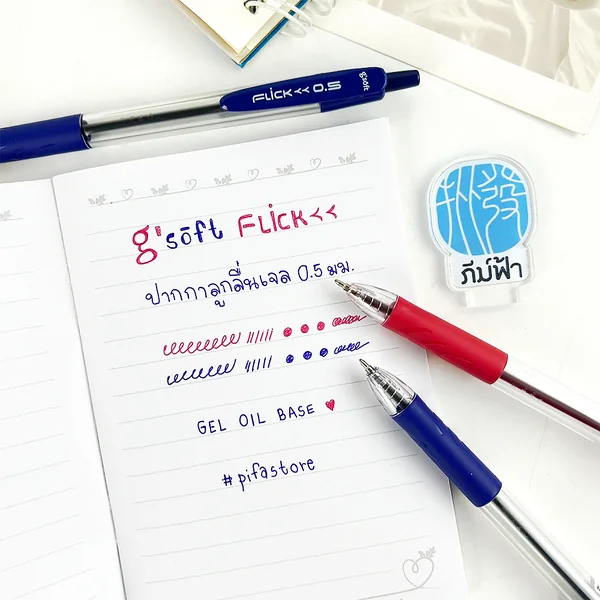 FLICK<< 0.5 g'soft
g'sōft FLICK<<
ปากกาลูกลื่นเจล 0.5 มม.
GEL OIL BASE ♥
#pifastore
ภีม์ฟ้า